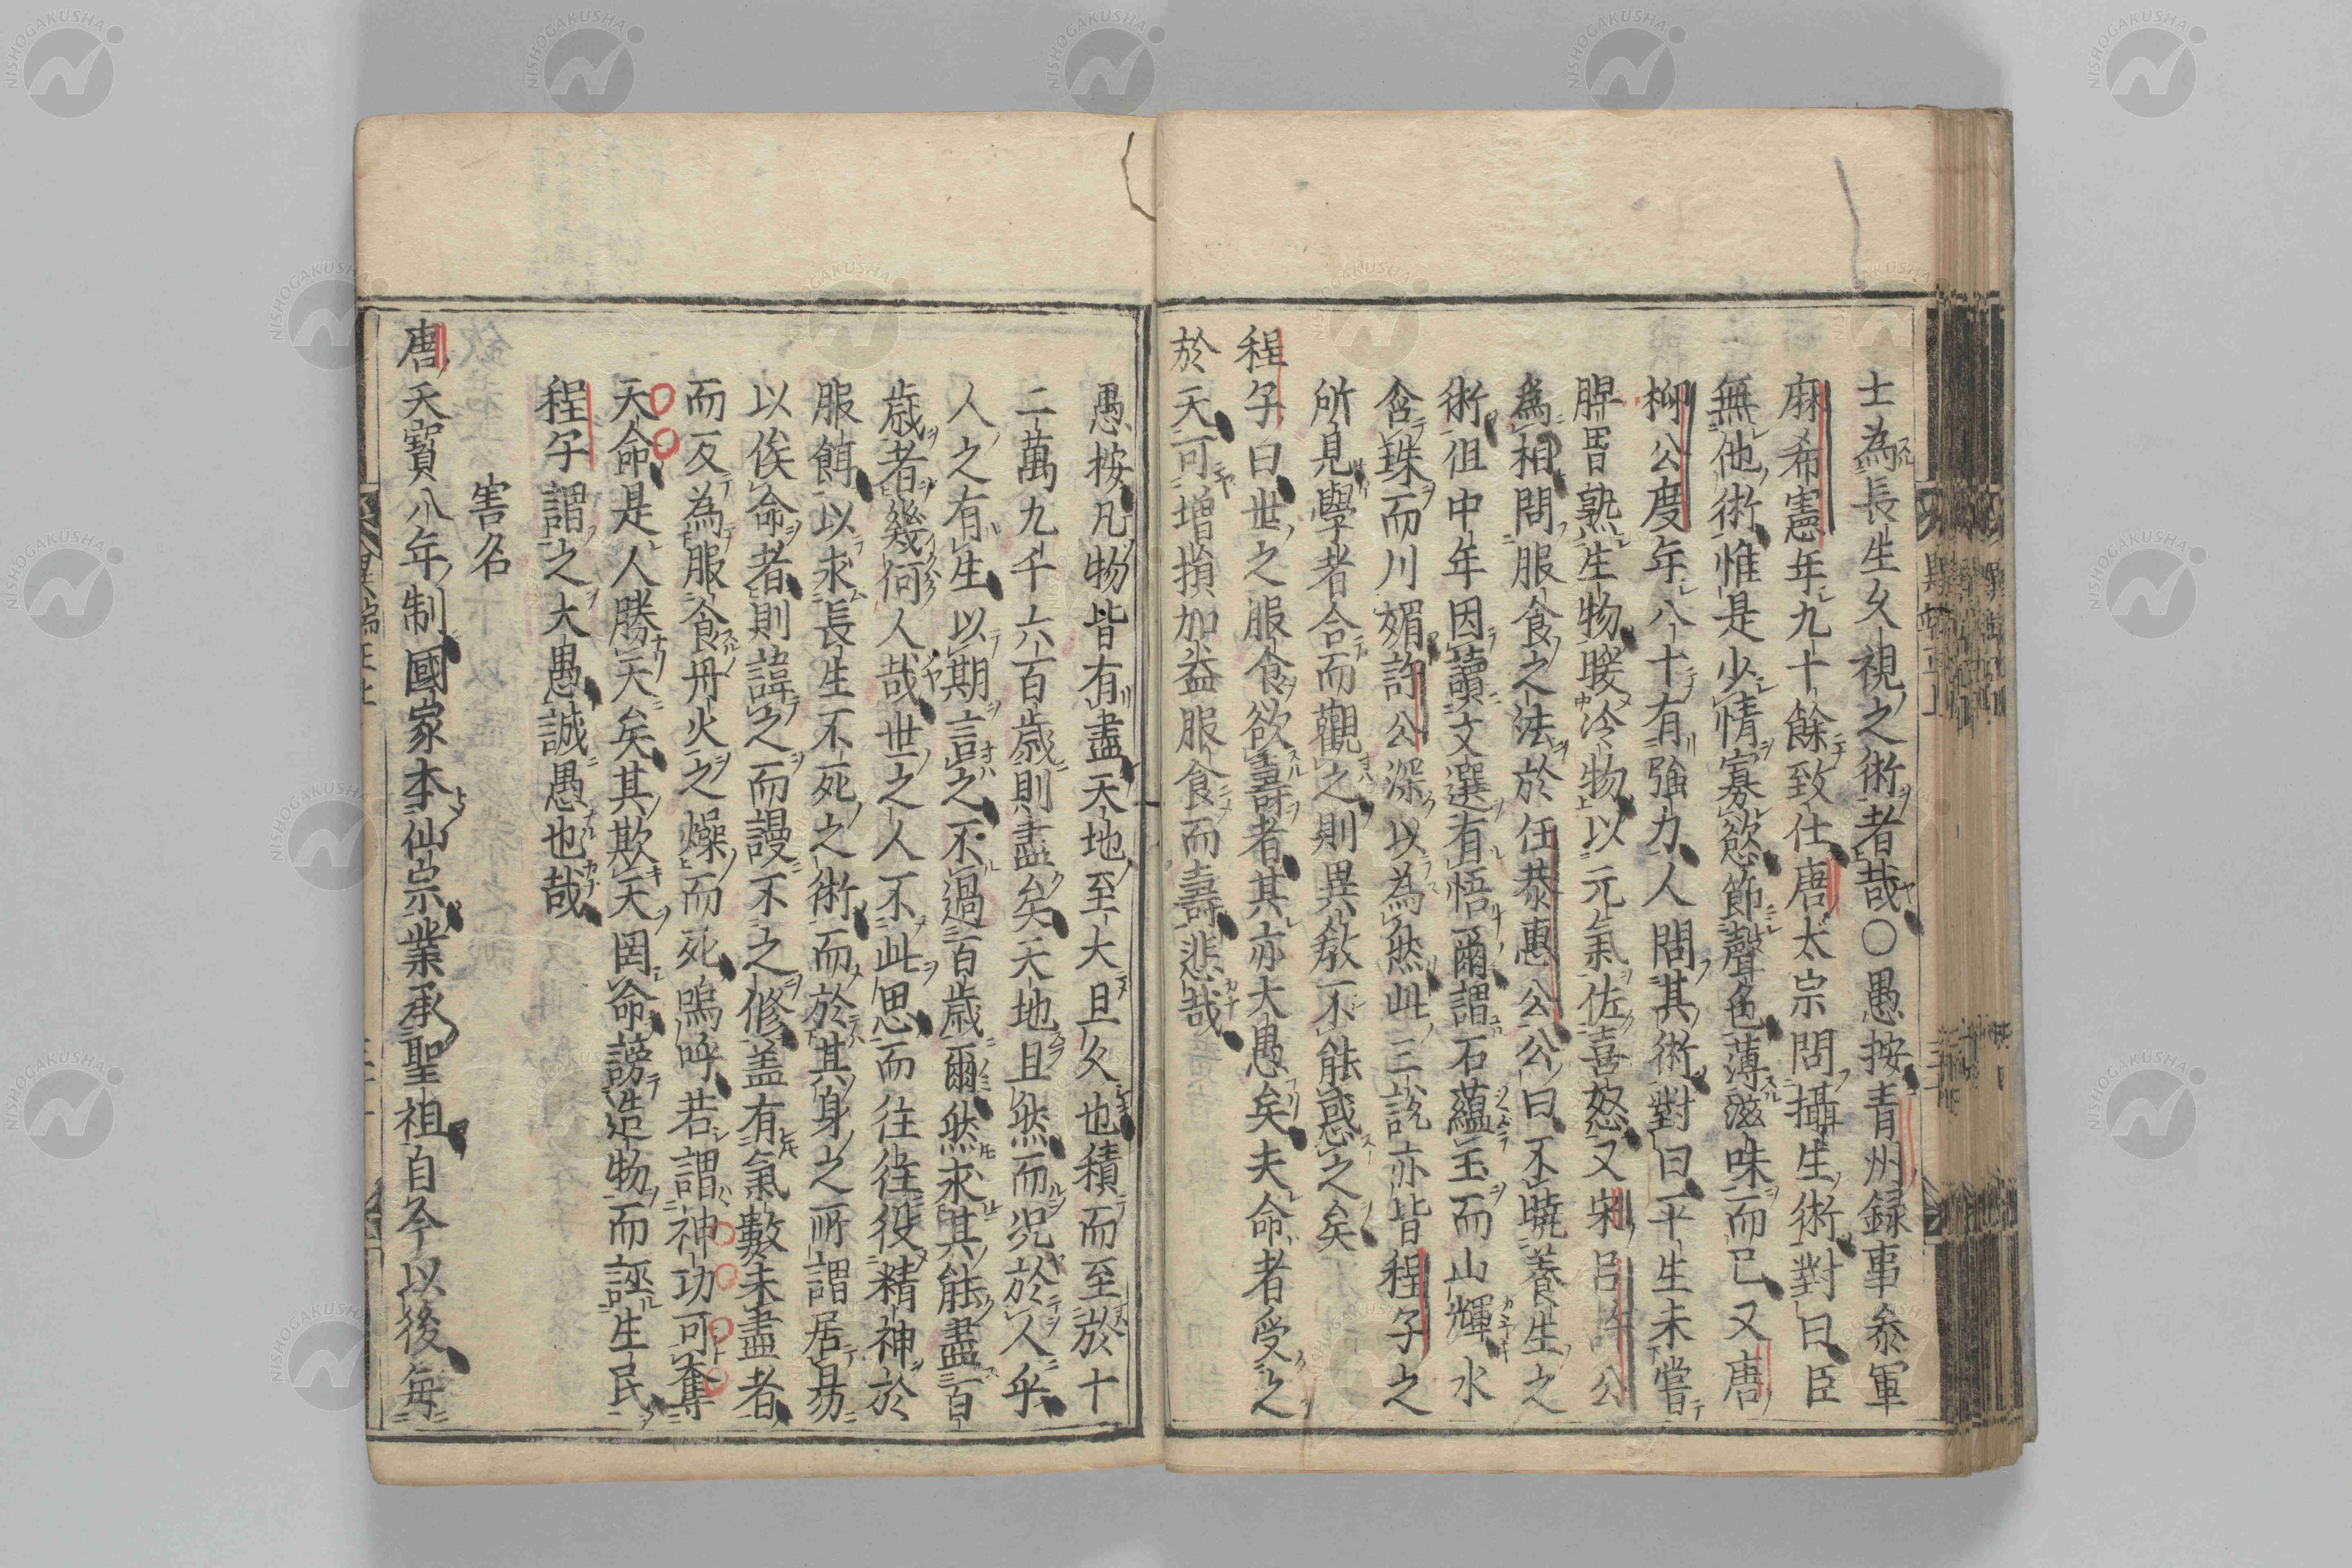 士為長生久視之術者哉○愚按青州録事叅軍
麻希憲年九十餘致仕唐太宗問攝生術對曰臣
無他術惟是少情寡慾節聲色薄滋味而已又唐
柳公度年八十有強力人問其術對曰平生未嘗
脾胃熟生物暖冷物以元氣佐喜怒又宋呂許公
為相問服食之法於任恭惠公公曰不曉養生之
術但中年因讀文選有悟爾謂石蘊玉而山輝水
含珠而川媚許公深以為然此三說亦皆程子之
所見學者合而觀之則異教不能惑之矣
程子曰世之服食欲壽者其亦大愚矣夫命者受之
於天可增損加益服食而壽悲哉
愚按凡物皆有盡天地至大且久也積而至於十
二萬九千六百歲則盡矣天地且然而況於人乎
人之有生以期言之不過百歲爾然求其能盡百
歲者幾何人哉世之人不此思而往往役精神於
服餌以求長生不死之術而於其身之所謂居易
以俟命者則諱之而謾不之修盖有氣數未盡者
而反為服食丹火之燥而死嗚呼若謂神功可奪
天命是人勝天矣其欺天罔命謗造物而誣生民
程子謂之大愚誠愚也哉
害名
唐天寶八年制國家本仙宗業承聖祖自今以後每